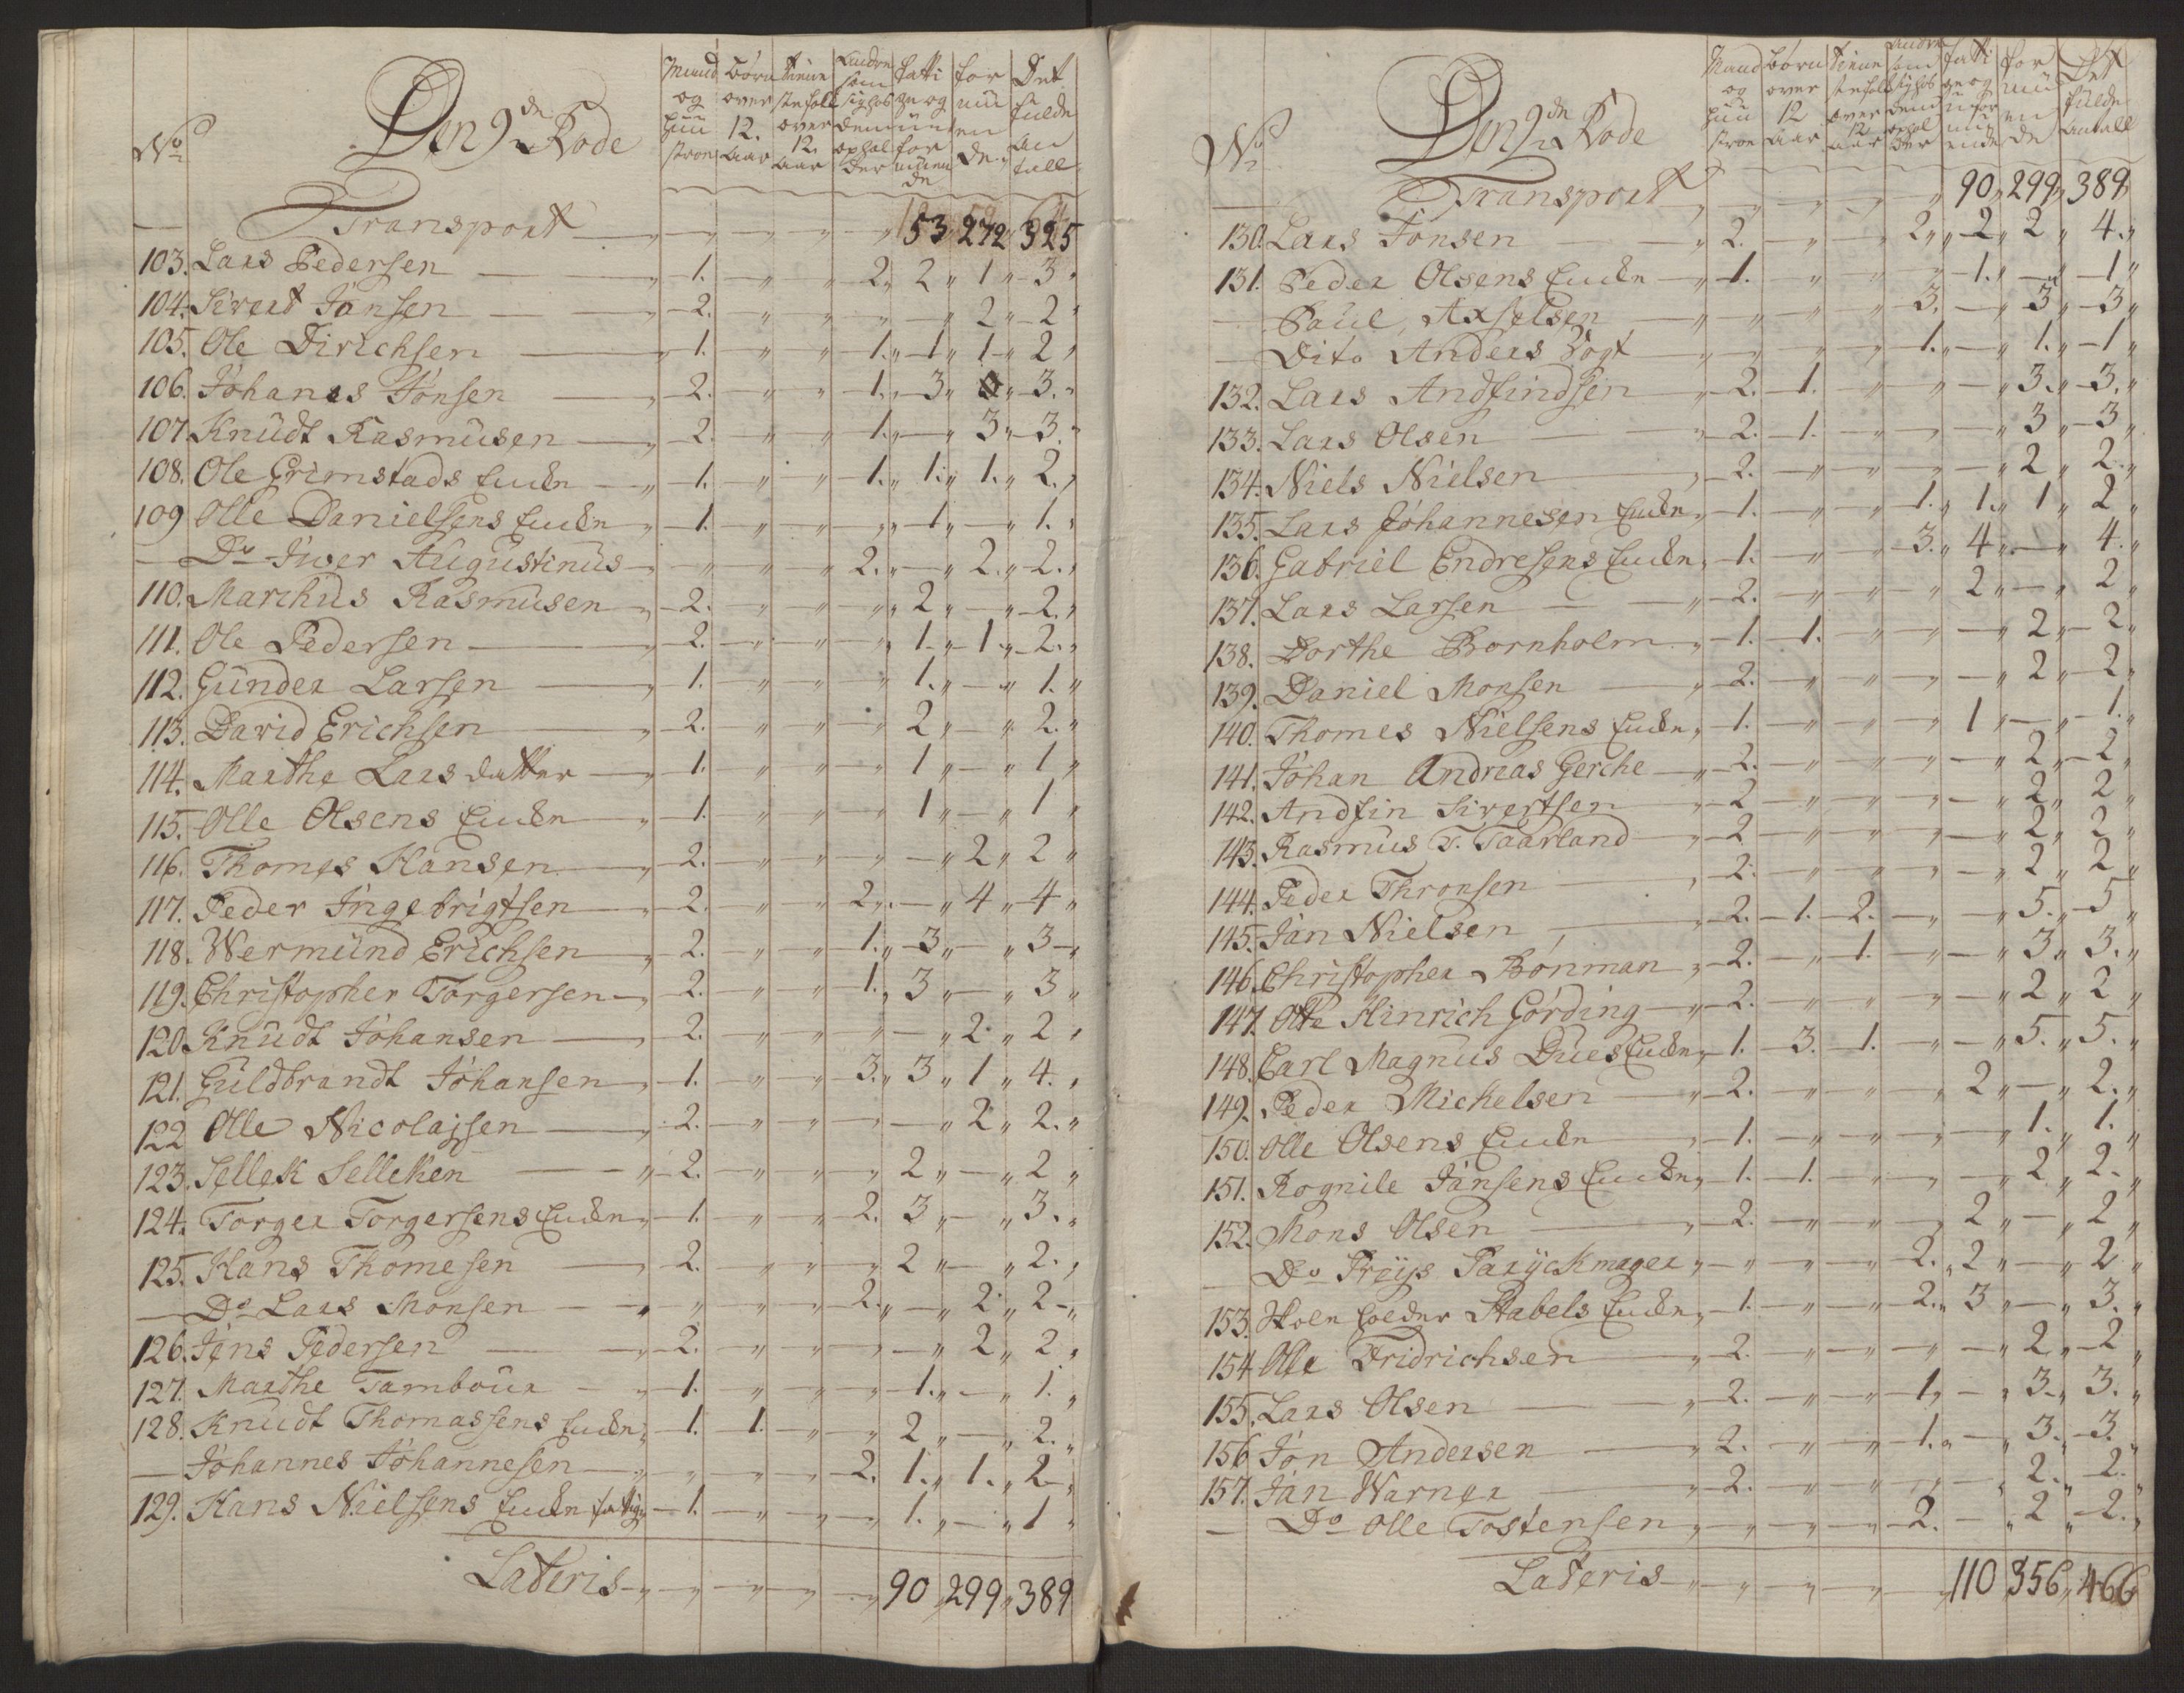 No Den 9de Rode Mand og Huu stroe Börn over 12. Aar tiene ste folk over 12. Aar Andre som sig hos dem ophol der fatti ge og un for müen de for mü en de Det fulde An tall
Transport 53 272 325
103. Lars Pedersen 1. 2 2 1 3
104. Sivert Jansen 2. 2 2
105. Ole Dirichsen 1. 1. 1 1 2
106. Johanes Jonsen 2. 1. 3 0 3.
107. Knüdt Rasmusen 2. 1. 3 3.
108. Ole Grimstads Encke 1. 1. 1. 1. 2.
109 Olle Danielsens Encke 1. 1 1.
Do Iwer Augustinus 2. 2. 2.
110. Marchus Rasmusen 2. 2 2.
111. Ole Pedersen 2. 1. 1. 2.
112. Gunder Larsen 1. 1. 1.
113. David Erichsen 2. 2 2.
114. Marthe Lars datter 1. 1 1
115. Olle Olsens Encke 1. 1 1
116. Thomes Hansen 2. 2 2
117. Peder Ingebrigtsen 2. 2. 4 4
118. Wermünd Erichsen 2. 1. 3 3
119. Christopher Torgersen 2. 1. 3 3
120. Knudt Johansen 2. 2 2
121. Guldbrandt Johansen 1. 3. 3 1 4.
122 Olle Nicolaisen 2. 2 2.
123. Sellek Selleken 2. 2 2
124. Torger Torgersens Encke 1. 2. 3 3.
125. Hans Thomesen 2. 2 2.
Do Lars Monsen 2. 2. 2
126. Jens Pedersen 2. 2 2
127. Marthe Tambour 1. 1. 1.
128. Knudt Thomassens Encke 1. 1. 2 2.
Johannes Johannesen 2. 1. 1. 2
129. Hans Nielsens Encke fattig 1. 1. 1
Lateris 90 299 389
No Den 9de Rode Mand og Huu stroe Börn over 12 Aar tiene ste folk over 12 Aar Andre som sig hos dem ophol der fatti ge og u for mü ende for mü en de Det fulde Antall
Transport 90 299 389
130. Lars Jonsen 2. 2 2 2 4.
131. Peder Olsens Encke 1. 1. 1
Paul Axselsen 3. 3 3
Dito Anders Vogt 1. 1. 1
132. Lars Andfindsen 2. 1. 3. 3.
133. Lars Olsen 2. 1. 3 3
134. Niels Nielsen 2. 2 2.
135. Lars Johannesen Encke 1. 1. 1. 1 2
136. Gabriel Endresens Encke 1. 3. 4 4.
137. Lars Larsen 2. 2 2
138. Dorthe Bornholm 1. 1. 2 2
139. Daniel Monsen 2. 2 2
140. Thomes Nielsens Encke 1. 1 1.
141. Johan Andreas Gerche 2. 2 2
142. Andfin Sivertsen 2 2 2
143. Rasmus T. Taarland 2 2 2
144. Peder Thronsen 2. 2 2
145. Jan Nielsen 2. 1. 2. 5. 5
146. Christopher Bonman 2. 1. 3 3.
147. Otte Hinrich Görding 2. 2 2
148. Carl Magnus Dues Encke 1. 3. 1. 5. 5.
149. Peder Michelsen 2. 2 2.
150. Olle Olsens Encke 1. 1. 1.
151. Rognile Jansens Encke 1. 1. 2 2
152. Mons Olsen 2. 2 2
Do Freys Parýckmager 2. 2 2
153. Skole holder Stabels Encke 1. 2. 3 3.
154 Olle Fridrichsen 2. 2 2
155. Lars Olsen 2. 1 3. 3.
156 Jon Andersen 2. 1. 3. 3.
157. Jan Warner 2. 2. 2.
Do Olle Tostensen 2. 2 2.
Lateris 110 356 466